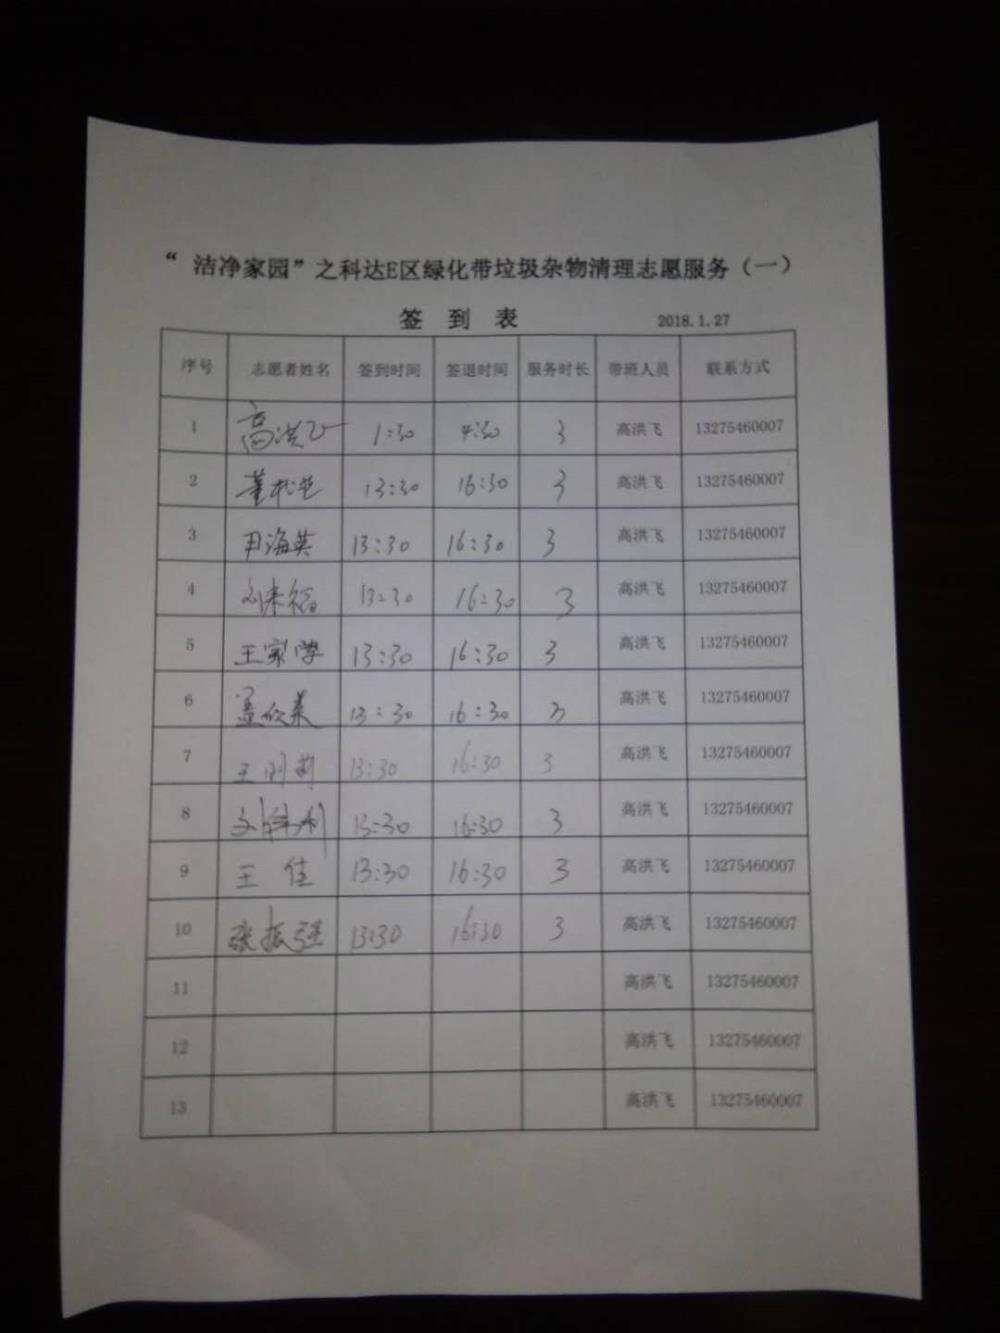 “ 洁净家园”之科达E区绿化带垃圾杂物清理志愿服务（一）
签 到 表 2018.1.27
序号 志愿者姓名 签到时间 签退时间 服务时长 带班人员 联系方式
1 高洪飞 1:30 4:30 3 高洪飞 13275460007
2 13:30 16:30 3 高洪飞 13275460007
3 尹海英 13:30 16:30 3 高洪飞 13275460007
4 13:30 16:30 3 高洪飞 13275460007
5 王家学 13:30 16:30 3 高洪飞 13275460007
6 孟欣美 13:30 16:30 3 高洪飞 13275460007
7 13:30 16:30 3 高洪飞 13275460007
8 13:30 16:30 3 高洪飞 13275460007
9 王佳 13:30 16:30 3 高洪飞 13275460007
10 张振强 13:30 16:30 3 高洪飞 13275460007
11 高洪飞 13275460007
12 高洪飞 13275460007
13 高洪飞 13275460007